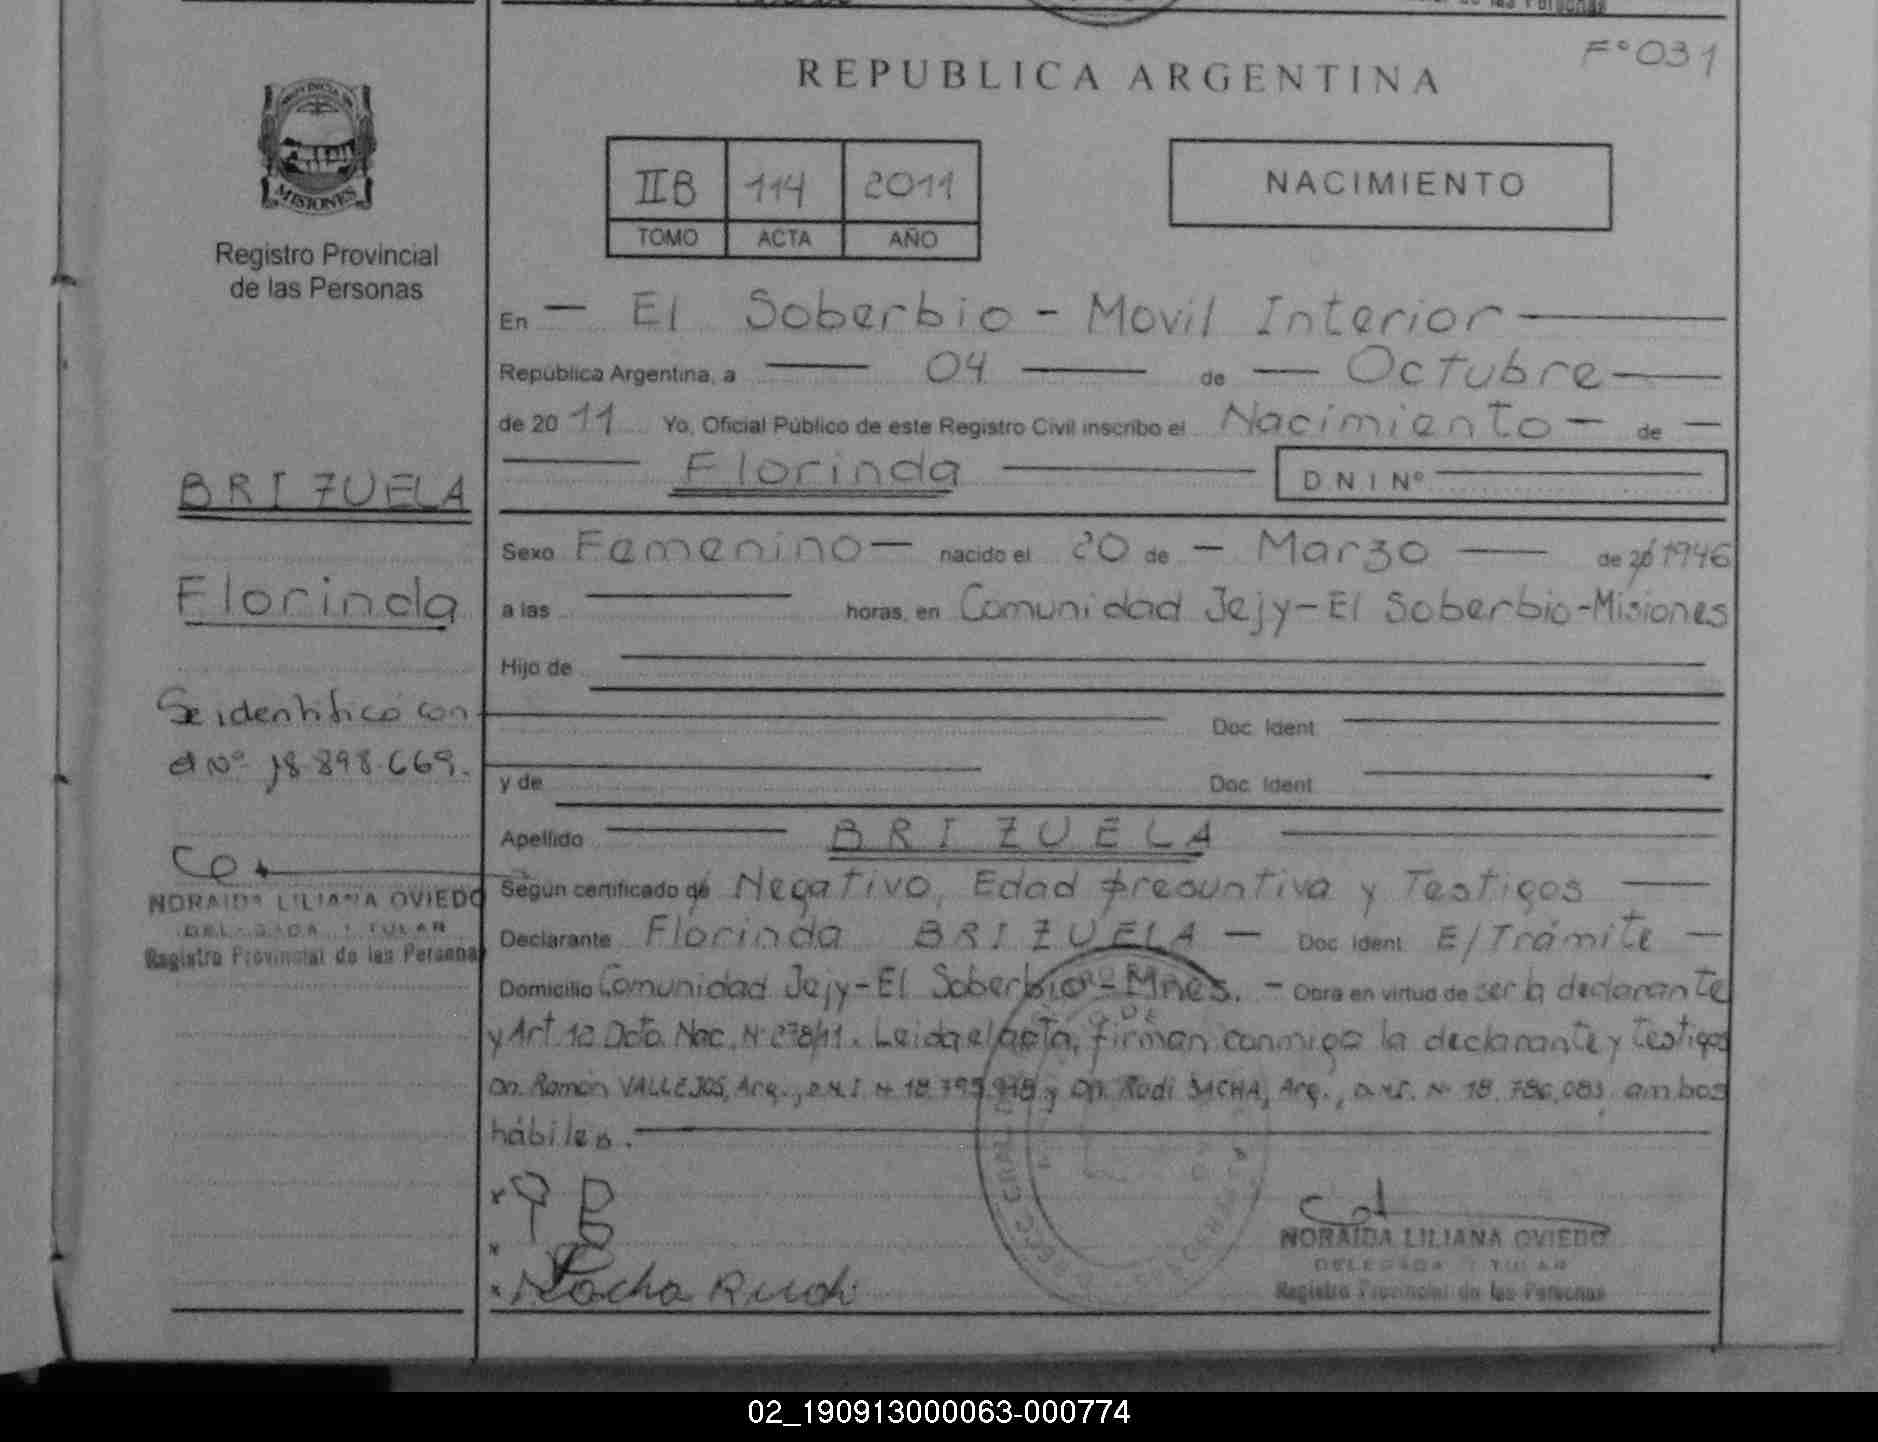 F° 031
REPUBLICA ARGENTINA
PROVINCIA DE
MISIONES
Registro Provincial
de las Personas
IIB 114 2011
TOMO ACTA AÑO
NACIMIENTO
En — El Soberbio - Movil Interior —
República Argentina, a — 04 — de — Octubre —
de 20 11 Yo, Oficial Público de este Registro Civil inscribo el Nacimiento — de —
— Florinda — D N I Nº —
BRIZUELA
Florinda
Sexo Femenino — nacido el 20 de — Marzo — de 20 1946
a las — horas, en Comunidad Jejy-El Soberbio-Misiones
Hijo de —
Se identifico con
el Nº 18.898.669.
— Doc. Ident. —
y de — Doc. Ident. —
Apellido — BRIZUELA —
Según certificado de Negativo, Edad presuntiva y Testigos —
Declarante Florinda BRIZUELA — Doc. Ident. E/Trámite —
Domicilio Comunidad Jejy-El Soberbio-Mnes. - Obra en virtud de ser la declarante
y Art. 12 Dcto. Nac. Nº 278/11. Leida el acta, firman conmigo la declarante y testigos
Dn. Ramón VALLEJOS, Arg., D.N.I. Nº y Dn. Rudi SACHA, Arg., D.N.I. Nº 18.786.083, ambos
hábiles. —
NORAIDA LILIANA OVIEDO
DELEGADA TITULAR
Registro Provincial de las Personas
Sacha Rudi
NORAIDA LILIANA OVIEDO
DELEGADA TITULAR
Registro Provincial de las Personas
02_190913000063-000774